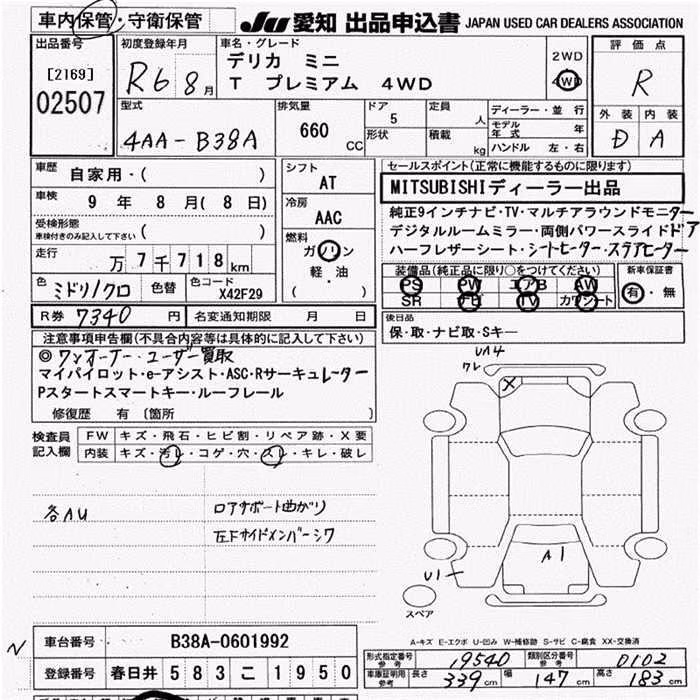 車内保管・守衛保管
JU 愛知 出品申込書 JAPAN USED CAR DEALERS ASSOCIATION
出品番号
[2169]
02507
初度登録年月
R6 8月
車名・グレード
デリカ ミニ
T プレミアム 4WD
2WD
4WD
評価点
R
外装 内装
D A
型式
4AA-B38A
排気量
660 CC
ドア
5
形状
定員
人
積載
kg
ディーラー・並行
モデル年式 年
ハンドル 左・右
車歴
自家用・( )
車検
9 年 8 月( 8 日)
受検形態
車検付きのみ記入して下さい ( )
走行
万 7千718 km
色
ミドリ/クロ
色替
色コード
X42F29
シフト
AT
冷房
AAC
燃料
ガソリン
軽・油
( )
セールスポイント(正常に機能するものに限ります)
MITSUBISHIディーラー出品
純正9インチナビ・TV・マルチアラウンドモニター
デジタルルームミラー・両側パワースライドドア
ハーフレザーシート・シートヒーター・ステアヒーター
装備品(純正品に限り○をつけてください)
PS PW エアB AW
SR ナビ TV カワシート
新車保証書
有・無
R券 7340 円
名変通知期限 月 日
後日品
保・取・ナビ取・Sキー
注意事項申告欄(不具合内容等は具体的に記入して下さい)
◎ワンオーナー・ユーザー買取
マイパイロット・e-アシスト・ASC・Rサーキュレーター
Pスタートスマートキー・ルーフレール
修復歴 有(箇所 )
検査員記入欄
FW キズ・飛石・ヒビ割・リペア跡・X要
内装 キズ・汚レ・コゲ・穴・スレ・キレ・破レ
各AU
ロアサポート曲がり
左Fサイドメンバーシワ
UA4
ワレ
X
A1
U1
スペア
A-キズ E-エクボ U-凹み W-補修跡 S-サビ C-腐食 XX-交換済
車台番号 B38A-0601992
登録番号 春日井 583 こ 1950
型式指定番号 参考 19540
類別区分番号 参考 0102
車庫証明用 参考 長さ 339 cm 幅 147 cm 高さ 183 cm